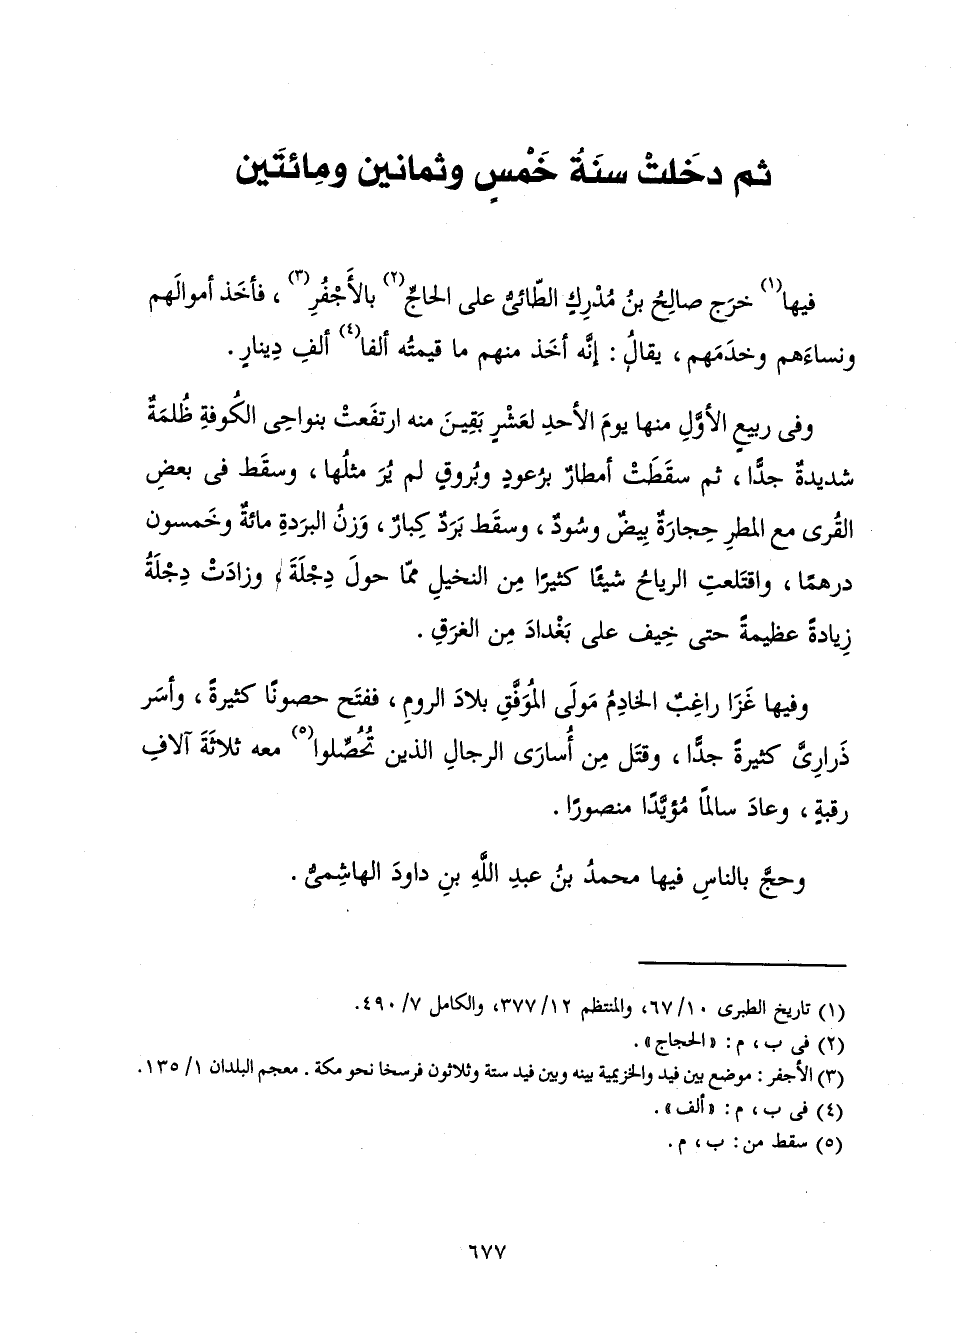 ثم دخَلتْ سنَةُ خَمْسٍ وثمانين ومِائتَين
فيها(١) خرَج صالِحُ بنُ مُدْرِكٍ الطّائىُّ على الحاجِّ(٢) بالأَجْفُرِ(٣) ، فأخَذ أموالَهم
ونساءَهم وخدَمَهم ، يقالُ : إنَّه أخَذ منهم ما قيمتُه ألفا(٤) ألفِ دِينارٍ .
وفى ربيعٍ الأوَّلِ منها يومَ الأحدِ لعَشْرٍ بَقِينَ منه ارتفَعتْ بنواحِى الكُوفةِ ظُلمَةٌ
شديدةٌ جدًّا ، ثم سقَطَتْ أمطارٌ برُعودٍ وبُروقٍ لم يُرَ مثلُها ، وسقَط فى بعضِ
القُرى مع المطرِ حِجارَةٌ بِيضٌ وسُودٌ ، وسقَط بَرَدٌ كِبارٌ ، وَزنُ البرَدةِ مائةٌ وخَمسون
درهمًا ، واقتَلعتِ الرياحُ شيئًا كثيرًا مِن النخيلِ ممّا حولَ دِجْلَةَ ، وزادَتْ دِجْلَةُ
زِيادةً عظيمةً حتى خِيف على بَغْدادَ مِن الغرَقِ .
وفيها غَزَا راغِبٌ الخادِمُ مَولَى المُوَفَّقِ بلادَ الرومِ ، ففتَح حصونًا كثيرةً ، وأسَر
ذَرارِىَّ كثيرةً جدًّا ، وقتَل مِن أُسارَى الرجالِ الذين تُحُصِّلوا(٥) معه ثلاثَةَ آلافِ
رقبةٍ ، وعادَ سالمًا مُؤيَّدًا منصورًا .
وحجَّ بالناسِ فيها محمدُ بنُ عبدِ اللَّهِ بنِ داودَ الهاشِمىُّ .
(١) تاريخ الطبرى ١٠/ ٦٧، والمنتظم ١٢/ ٣٧٧، والكامل ٧/ ٤٩٠.
(٢) فى ب ، م : «الحجاج» .
(٣) الأجفر : موضع بين فيد والخزيمية بينه وبين فيد ستة وثلاثون فرسخا نحو مكة . معجم البلدان ١/ ١٣٥.
(٤) فى ب ، م : «ألف» .
(٥) سقط من : ب ، م .
٦٧٧